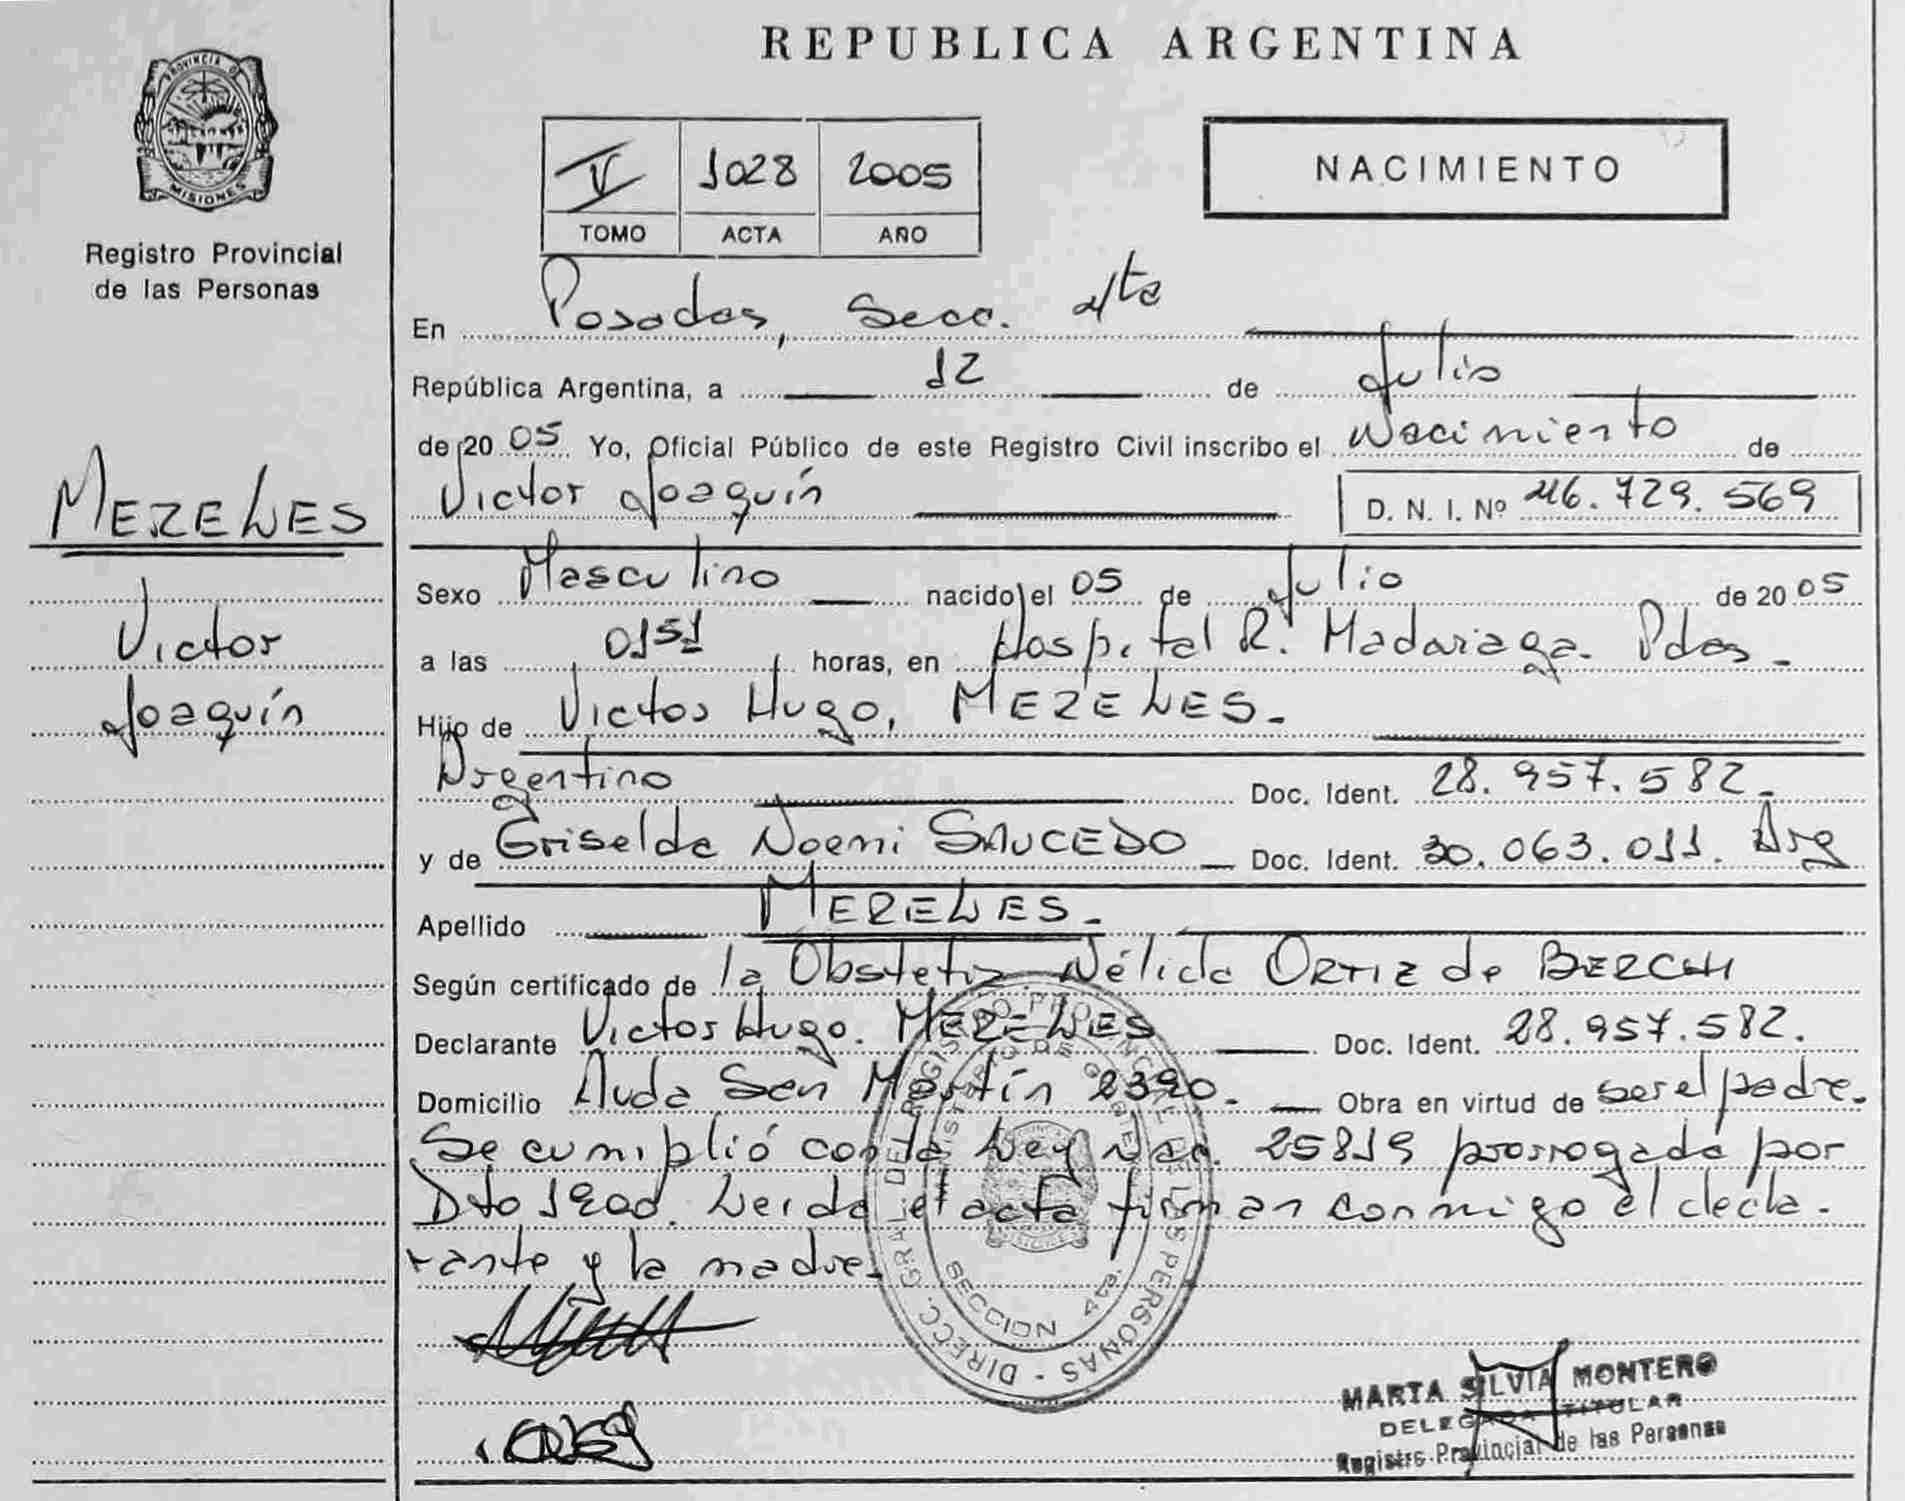 REPUBLICA ARGENTINA
PROVINCIA D
MISIONES
Registro Provincial
de las Personas
V 1028 2005
TOMO ACTA AÑO
NACIMIENTO
En Posadas, Secc. 4ta
República Argentina, a 12 de Julio
de 2005 Yo, Oficial Público de este Registro Civil inscribo el Nacimiento de
Victor Joaquín D. N. I. Nº 46.729.569
MERELES
Victor
Joaquín
Sexo Masculino nacido el 05 de Julio de 2005
a las 0151 horas, en Hospital R. Madariaga. Pdas.
Hijo de Victor Hugo, MERELES.
Argentino Doc. Ident. 28.957.582.
y de Griselda Noemi SAUCEDO Doc. Ident. 30.063.011. Arg
Apellido MERELES.
Según certificado de la Obstetriz Nélida ORTIZ de BERCHI
Declarante Victor Hugo. MERELES Doc. Ident. 28.957.582.
Domicilio Avda San Martín 2390. Obra en virtud de ser el padre.
Se cumplió con la Ley Nac. 25819 prorrogada por
Dto Leida el acta firman conmigo el decla-
rante y la madre.
DIRECC. GRAL. DEL REGISTRO PROVINCIAL DE LAS PERSONAS
MINISTERIO DE GOBIERNO
SECCION 4ta.
MARTA SILVIA MONTERO
DELEGADA TITULAR
Registro Provincial de las Personas